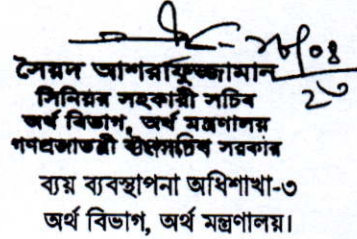 সৈয়দ আশরাফুজ্জামান
সিনিয়র সহকারী সচিব
অর্থ বিভাগ, অর্থ মন্ত্রণালয়
গণপ্রজাতন্ত্রী সরকার
ব্যয় ব্যবস্থাপনা অধিশাখা-৩
অর্থ বিভাগ, অর্থ মন্ত্রণালয়।